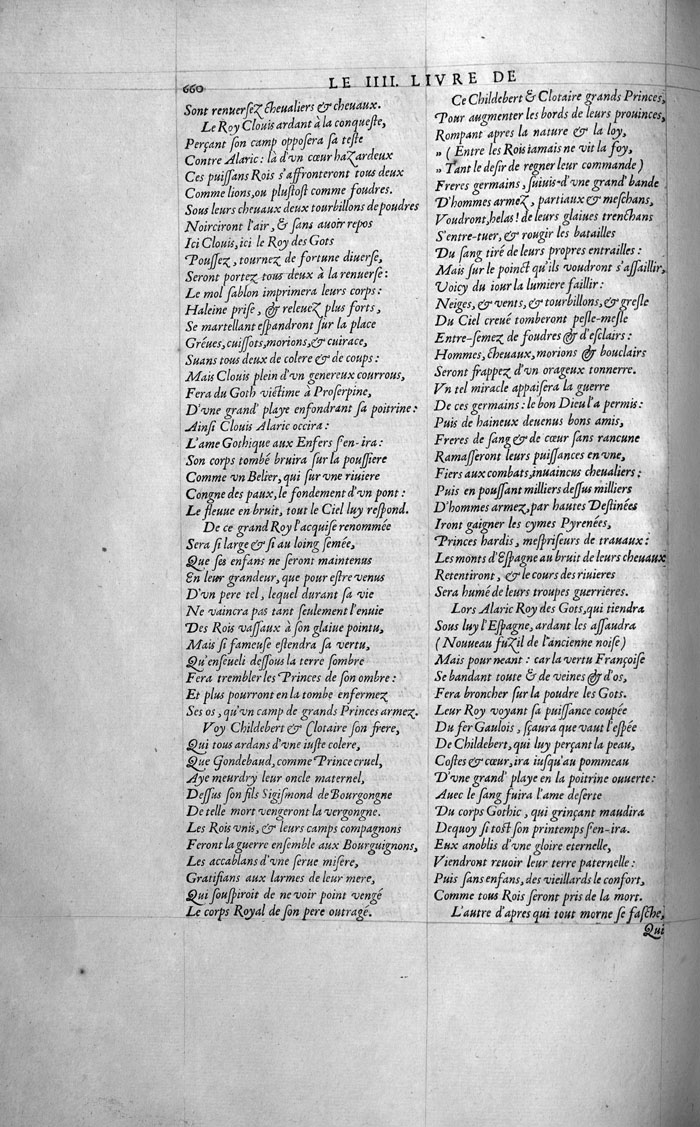 660
LE IIII. LIVRE DE
Sont renuersez cheualiers & cheuaux.
Le Roy Clouis ardant à la conqueste,
Perçant son camp opposera sa teste
Contre Alaric: là d'vn cœur hazardeux
Ces puissans Rois s'affronteront tous deux
Comme lions, ou plustost comme foudres.
Sous leurs cheuaux deux tourbillons de poudres
Noirciront l'air, & sans auoir repos
Ici Clouis, ici le Roy des Gots
Poussez, tournez de fortune diuerse,
Seront portez tous deux à la renuerse:
Le mol sablon imprimera leurs corps:
Haleine prise, & releuez plus forts,
Se martellant espandront sur la place
Gréues, cuissots, morions, & cuirace,
Suans tous deux de colere & de coups:
Mais Clouis plein d'vn genereux courrous,
Fera du Goth victime à Proserpine,
D'vne grand' playe enfondrant sa poitrine:
Ainsi Clouis Alaric occira:
L'ame Gothique aux Enfers s'en-ira:
Son corps tombé bruira sur la poussiere
Comme vn Belier, qui sur vne riuiere
Congne des paux, le fondement d'vn pont:
Le fleuue en bruit, tout le Ciel luy respond.
De ce grand Roy l'acquise renommée
Sera si large & si au loing semée,
Que ses enfans ne seront maintenus
En leur grandeur, que pour estre venus
D'vn pere tel, lequel durant sa vie
Ne vaincra pas tant seulement l'enuie
Des Rois vassaux à son glaiue pointu,
Mais si fameuse estendra sa vertu,
Qu'enseueli dessous la terre sombre
Fera trembler les Princes de son ombre:
Et plus pourront en la tombe enfermez
Ses os, qu'vn camp de grands Princes armez.
Voy Childebert & Clotaire son frere,
Qui tous ardans d'vne iuste colere,
Que Gondebaud, comme Prince cruel,
Aye meurdry leur oncle maternel,
Dessus son fils Sigismond de Bourgongne
De telle mort vengeront la vergongne.
Les Rois vnis, & leurs camps compagnons
Feront la guerre ensemble aux Bourguignons,
Les accablans d'vne serue misere,
Gratifians aux larmes de leur mere,
Qui souspiroit de ne voir point vengé
Le corps Royal de son pere outragé.
Ce Childebert & Clotaire grands Princes,
Pour augmenter les bords de leurs prouinces,
Rompant apres la nature & la loy,
„ (Entre les Rois iamais ne vit la foy,
„ Tant le desir de regner leur commande)
Freres germains, suiuis d'vne grand' bande
D'hommes armez, partiaux & meschans,
Voudront, helas! de leurs glaiues trenchans
S'entre-tuer, & rougir les batailles
Du sang tiré de leurs propres entrailles:
Mais sur le poinct qu'ils voudront s'assaillir,
Voicy du iour la lumiere faillir:
Neiges, & vents, & tourbillons, & gresle
Du Ciel creué tomberont pesle-mesle
Entre-semez de foudres & d'esclairs:
Hommes, cheuaux, morions & bouclairs
Seront frappez d'vn orageux tonnerre.
Vn tel miracle appaisera la guerre
De ces germains: le bon Dieu l'a permis:
Puis de haineux deuenus bons amis,
Freres de sang & de cœur sans rancune
Ramasseront leurs puissances en vne,
Fiers aux combats, inuaincus cheualiers:
Puis en poussant milliers dessus milliers
D'hommes armez, par hautes Destinées
Iront gaigner les cymes Pyrenées,
Princes hardis, mespriseurs de trauaux:
Les monts d'Espagne au bruit de leurs cheuaux
Retentiront, & le cours des riuieres
Sera humé de leurs troupes guerrieres.
Lors Alaric Roy des Gots, qui tiendra
Sous luy l'Espagne, ardant les assaudra
(Nouueau fuzil de l'ancienne noise)
Mais pour neant: car la vertu Françoise
Se bandant toute & de veines & d'os,
Fera broncher sur la poudre les Gots.
Leur Roy voyant sa puissance coupée
Du fer Gaulois, sçaura que vaut l'espée
De Childebert, qui luy perçant la peau,
Costes & cœur, ira iusqu'au pommeau
D'vne grand' playe en la poitrine ouuerte:
Auec le sang fuira l'ame deserte
Du corps Gothic, qui grinçant maudira
Dequoy si tost son printemps s'en-ira.
Eux anoblis d'vne gloire eternelle,
Viendront reuoir leur terre paternelle:
Puis sans enfans, des vieillards le confort,
Comme tous Rois seront pris de la mort.
L'autre d'apres qui tout morne se fasche,
Qui